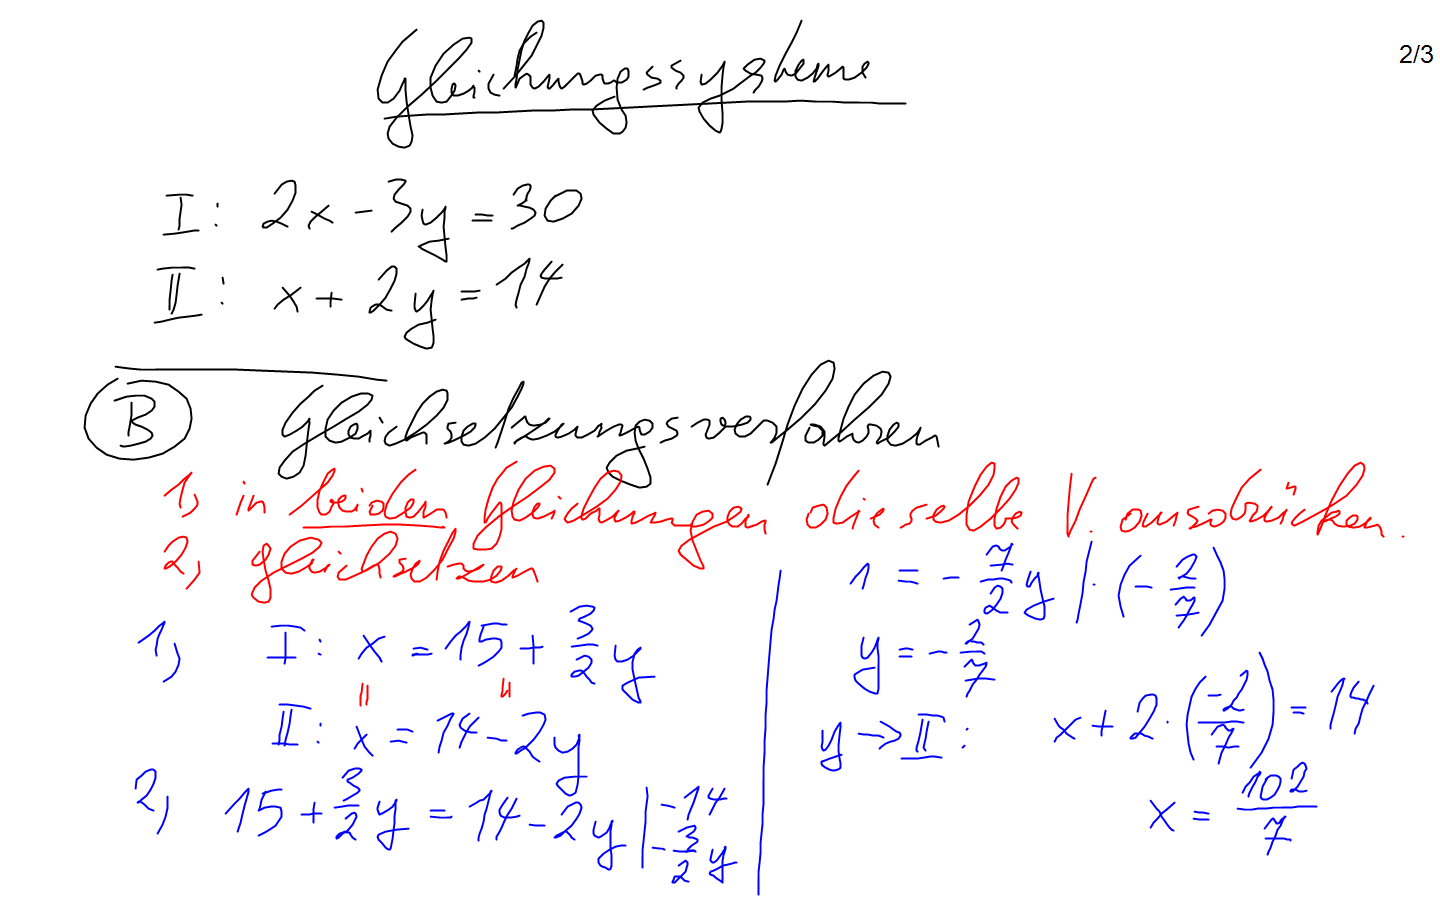 Gleichungssysteme
2/3
I: 2x - 3y = 30
II: x + 2y = 14
B Gleichsetzungsverfahren
1, in beiden Gleichungen die selbe V. ausdrücken.
2, gleichsetzen
1, I: x = 15 + 3/2 y
= =
II: x = 14 - 2y
2, 15 + 3/2 y = 14 - 2y | -14
- 3/2 y
1 = - 7/2 y | · (- 2/7)
y = - 2/7
y → II: x + 2 · (-2/7) = 14
x = 102/7